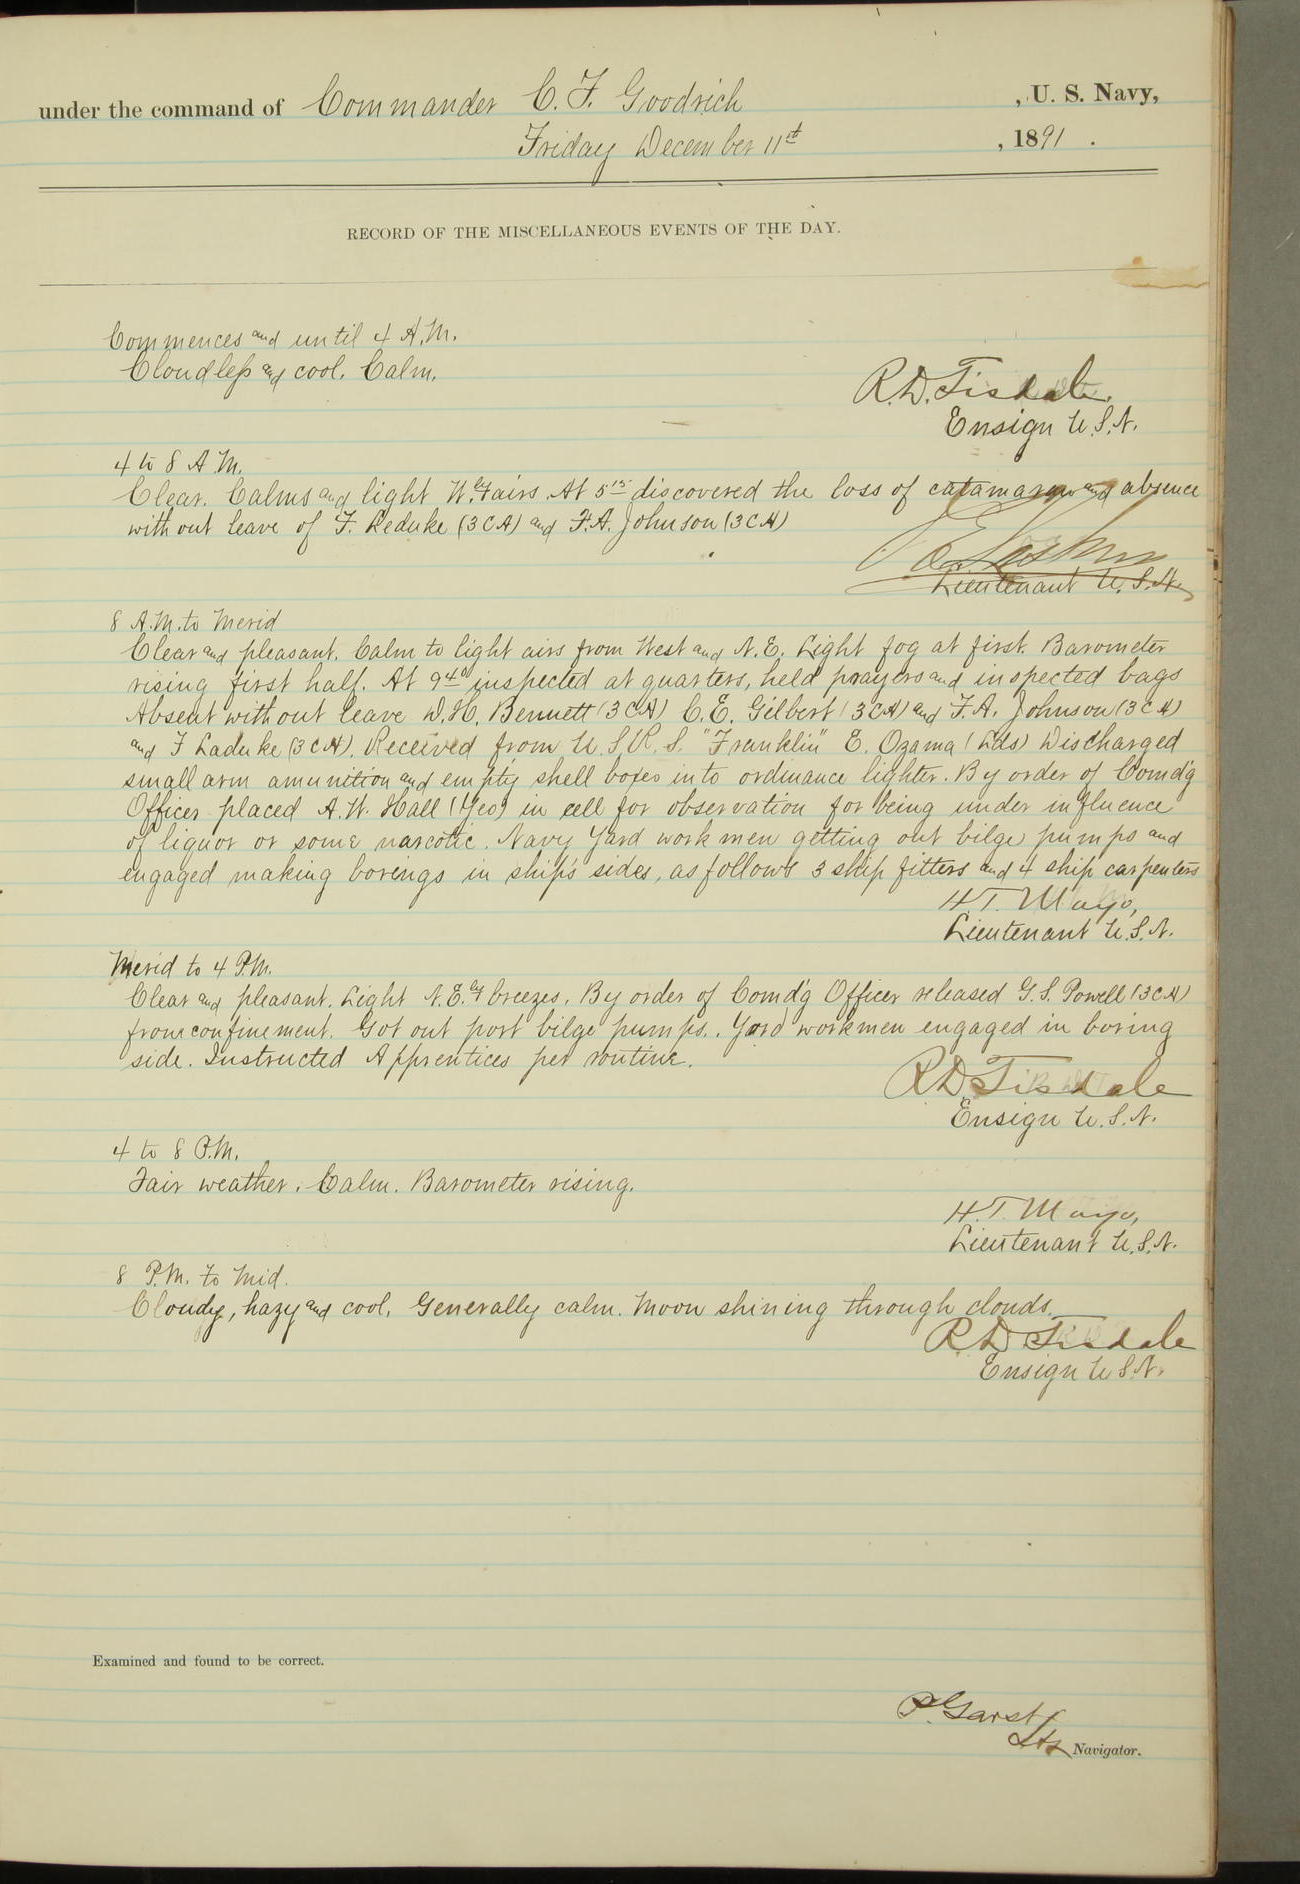 under the command of Commander C. F. Goodrich , U. S. Navy,
Friday December 11th , 1891 .
RECORD OF THE MISCELLANEOUS EVENTS OF THE DAY.
Commences and until 4 A.M.
Cloudless and cool. Calm.
R.D. Tisdale.
Ensign U.S.N.
4 to 8 A.M.
Clear. Calms and light W'ly airs. At 5 15 discovered the loss of catamaran and absence
without leave of F. Leduke (3CA) and F.A. Johnson (3CA)
Lieutenant U.S.N.
8 A.M. to Merid
Clear and pleasant. Calm to light airs from West and N.E. Light fog at first. Barometer
rising first half. At 9 40 inspected at quarters, held prayers and inspected bags
Absent without leave W.H. Bennett (3CA) C.E. Gilbert (3CA) and F.A. Johnson (3CA)
and F Laduke (3CA). Received from U.S.R.S. "Franklin" E. Ozama (Lds) Discharged
small arm amunition and empty shell boxes into ordinance lighter. By order of Comd'g
Officer placed A.W. Hall (Yeo) in cell for observation for being under influence
of liquor or some narcotic. Navy Yard workmen getting out bilge pumps and
engaged making borings in ship's sides, as follows 3 ship fitters and 4 ship carpenters
H.T. Mayo,
Lieutenant U.S.N.
Merid to 4 P.M.
Clear and pleasant. Light N.E.'ly breezes. By order of Comd'g Officer released G.S. Powell (3CA)
from confinement. Got out port bilge pumps. Yard workmen engaged in boring
side. Instructed Apprentices per routine.
R.D. Tisdale
Ensign U.S.N.
4 to 8 P.M.
Fair weather. Calm. Barometer rising.
H.T. Mayo,
Lieutenant U.S.N.
8 P.M. to Mid.
Cloudy, hazy and cool. Generally calm. Moon shining through clouds.
R.D. Tisdale
Ensign U.S.N.
Examined and found to be correct.
P. Garst
Lt. Navigator.